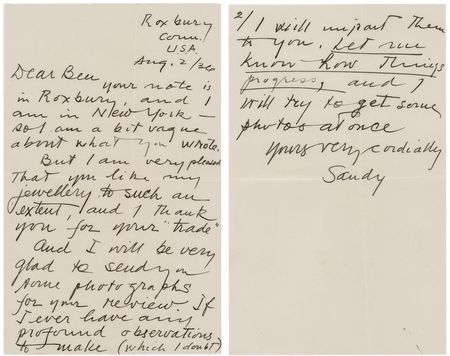 Roxbury
Conn.
U.S.A.
Aug. 2/
Dear Ben
your note is
in Roxbury, and I
am in New York —
so I am a bit vague
about what you wrote.
But I am very pleased
that you like my
jewellery to such an
extent, and I thank
you for your "trade"
And I will be very
glad to send you
some photographs
for your review If
I ever have any
profound observations
to make (which I doubt)
2/ I will impart them
to you. Let me
know how things
progress, and I
will try to get some
photos at once
Yours very cordially
Sandy